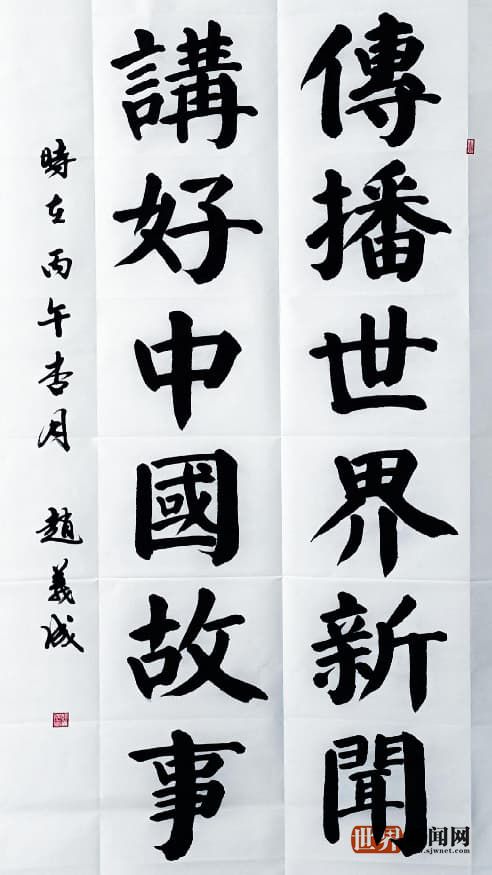 傳播世界新聞
講好中國故事
時在丙午杏月 趙義成
世界新闻网
www.sjwnet.com